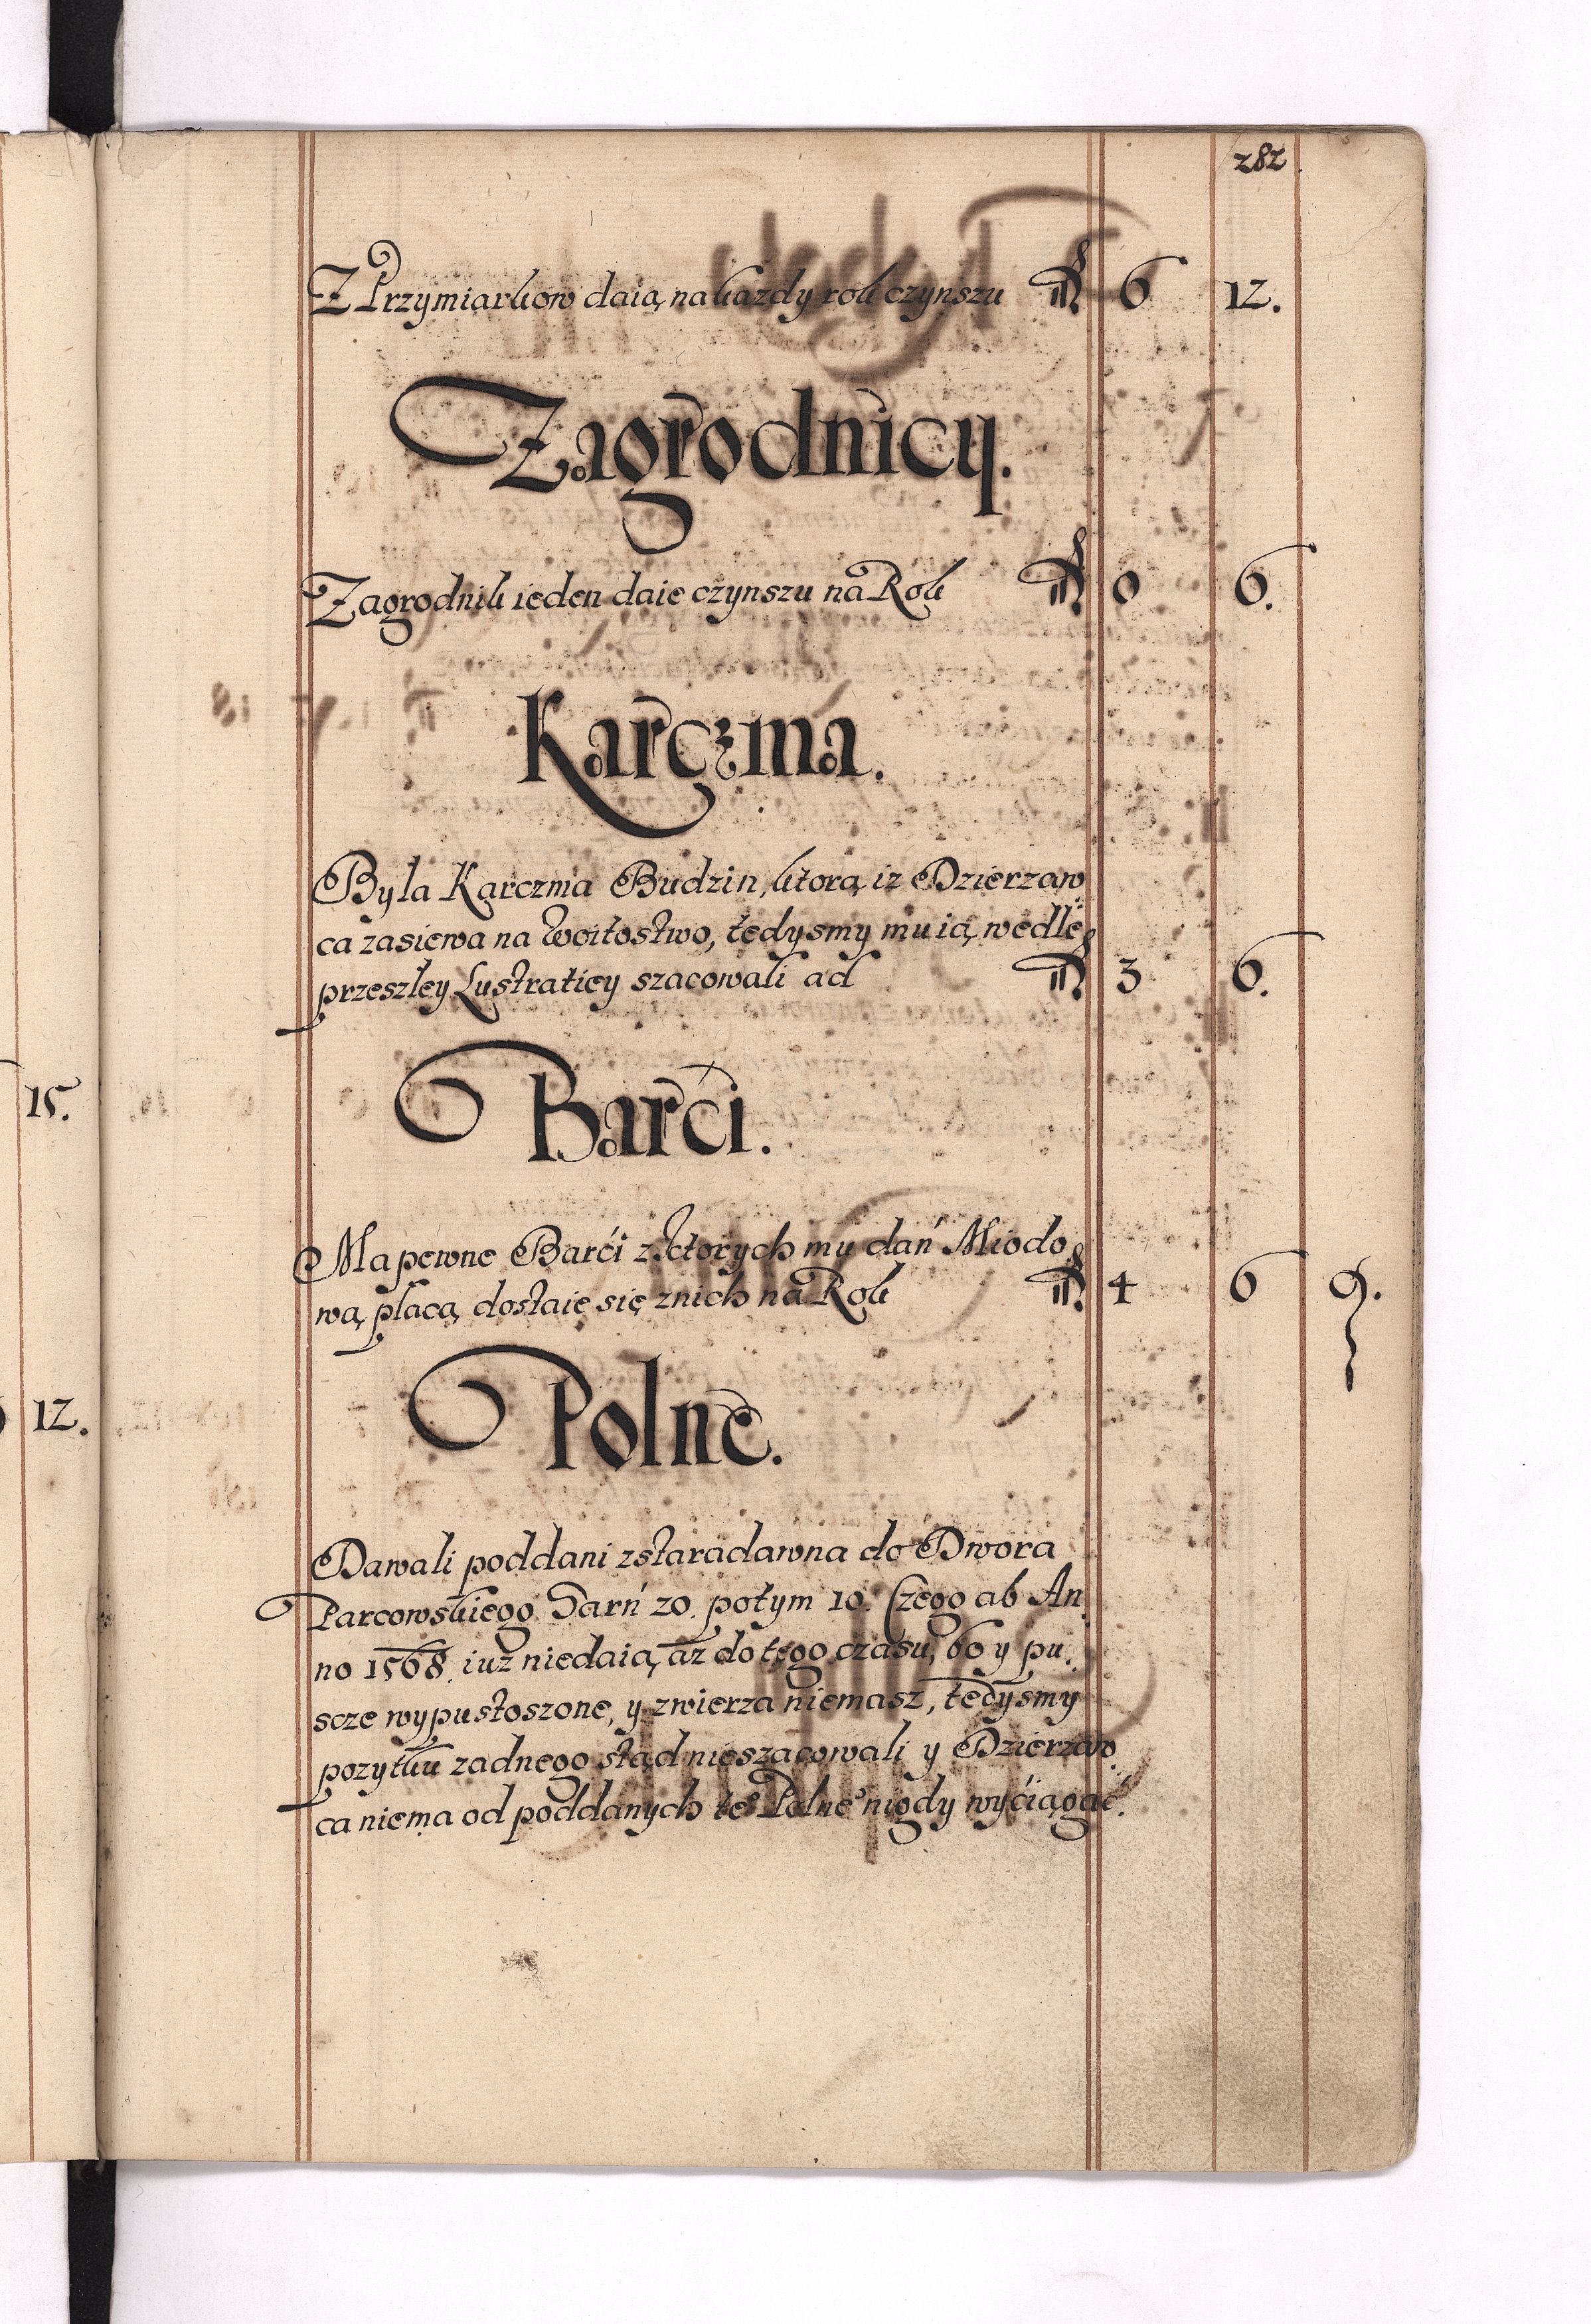 282
Z Przymiarkow daią na każdy rok czynszu fl 6 12.
Zagrodnicy.
Zagrodnik ieden daie czynszu na Rok fl 0 6.
Karczma.
Byla Karczma Budzin, ktorą iz Dzierzaw
ca zasiewa na Woitostwo, tedysmy mu ią wedle
przeszley Lustratiey szacowali ad fl 3 6.
Barći.
Ma pewne Barći z ktorych mu dań Miodo
wą placą dostaie się znich na Rok fl 4 6 9.
Polne.
Dawali poddani zstaradawna do Dwora
Parcowskiego Sarń 20. potym 10. Czego ab An
no 1568. iuż niedaią aż do tego czasu, bo y pu.
scze wypustoszone, y zwierza niemasz, tedysmy
pozytku zadnego stąd nieszacowali y Dzierzaw
ca niema od poddanych te° Polne° nigdy wyćiągać.
15.
12.